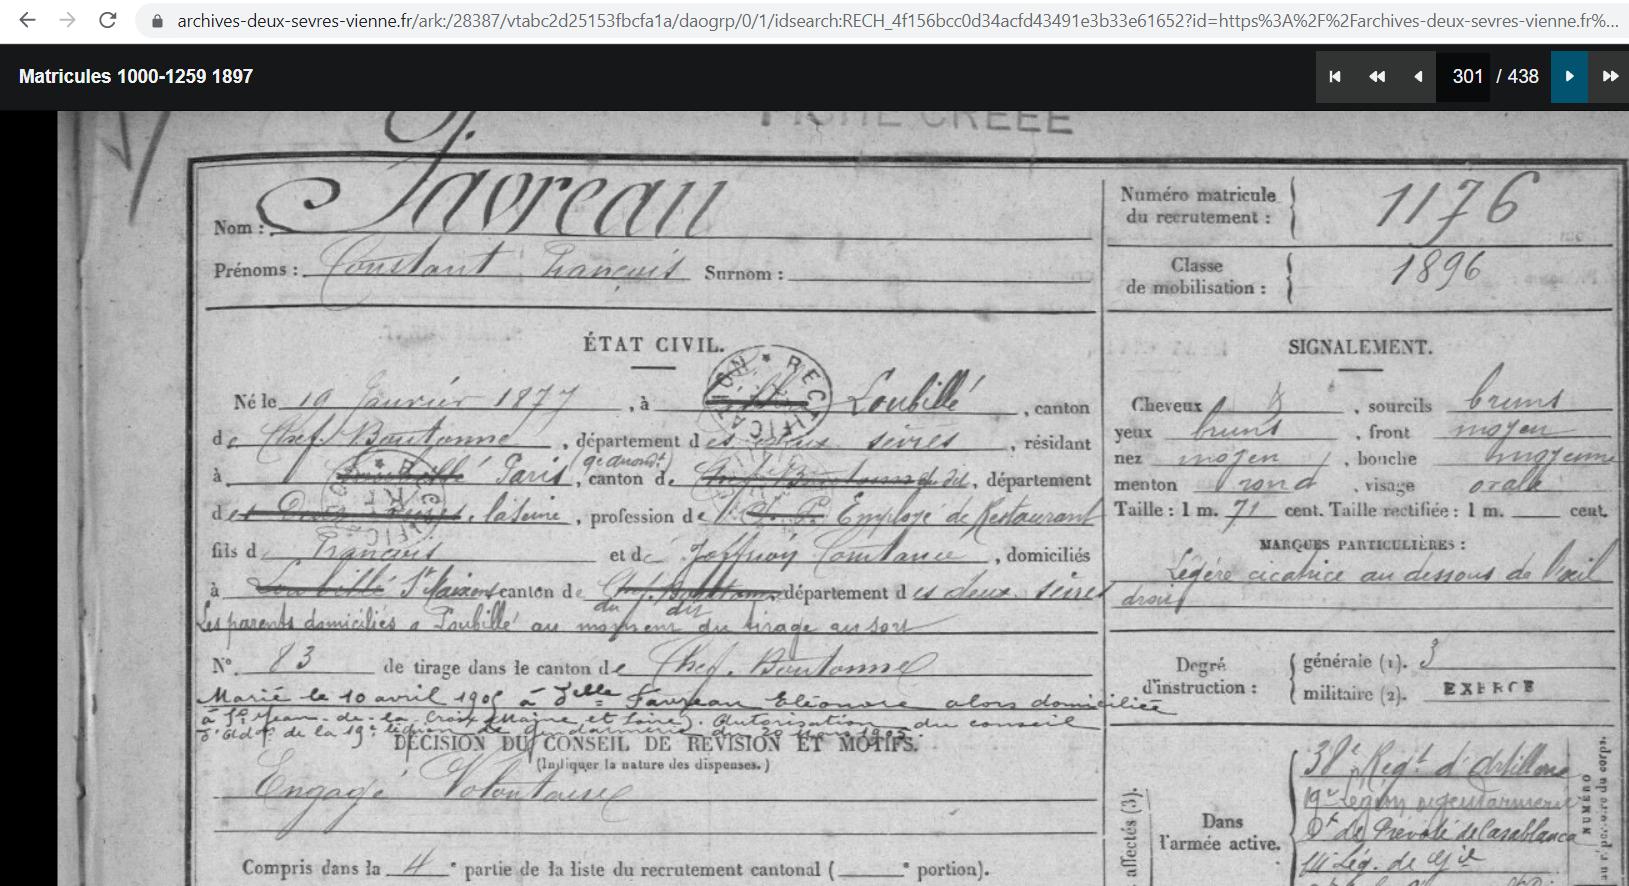 archives-deux-sevres-vienne.fr/ark:/28387/vtabc2d25153fbcfa1a/daogrp/0/1/idsearch:RECH_4f156bcc0d34acfd43491e3b33e61652?id=https%3A%2F%2Farchives-deux-sevres-vienne.fr%...
Matricules 1000-1259 1897
301 / 438
FICHE CRÉÉE
Nom : Favreau
Prénoms : Constant François Surnom :
Numéro matricule du recrutement : 1176
Classe de mobilisation : 1896
ÉTAT CIVIL.
RECTIFICATION
Né le 19 Janvier 1877, à Loubillé, canton
de Chef-Boutonne, département des deux sèvres, résidant
à Paris, canton de du dit, département
de la Seine, profession de Employé de Restaurant
fils de François et de Joffrion Constance, domiciliés
à St Maixent canton de du dit département des deux sèvres
Les parents domiciliés à Loubillé au moment du tirage au sort
N° 83 de tirage dans le canton de Chef-Boutonne
Marié le 10 avril 1905 à Delle Favreau Eléonore alors domiciliée
à St Jean-de-la Croix (Maine et Loire). Autorisation du conseil
d'Adon de la 19e légion de gendarmerie du 20 Mars 1905.
DÉCISION DU CONSEIL DE RÉVISION ET MOTIFS.
(Indiquer la nature des dispenses.)
Engagé Volontaire
Compris dans la 4e partie de la liste du recrutement cantonal ( e portion).
SIGNALEMENT.
Cheveux, sourcils bruns
yeux bruns, front moyen
nez moyen, bouche moyenne
menton rond, visage ovale
Taille : 1 m. 71 cent. Taille rectifiée : 1 m. cent.
MARQUES PARTICULIÈRES :
Légère cicatrice au dessous de l'œil
droit
Degré d'instruction : générale (1). 3
militaire (2). EXERCÉ
affectés (3).
Dans l'armée active.
38e Regt d'Artillerie
19e Légion de gendarmerie
Dt de Prévôté de Casablanca
Lég. de Gie
NUMÉRO